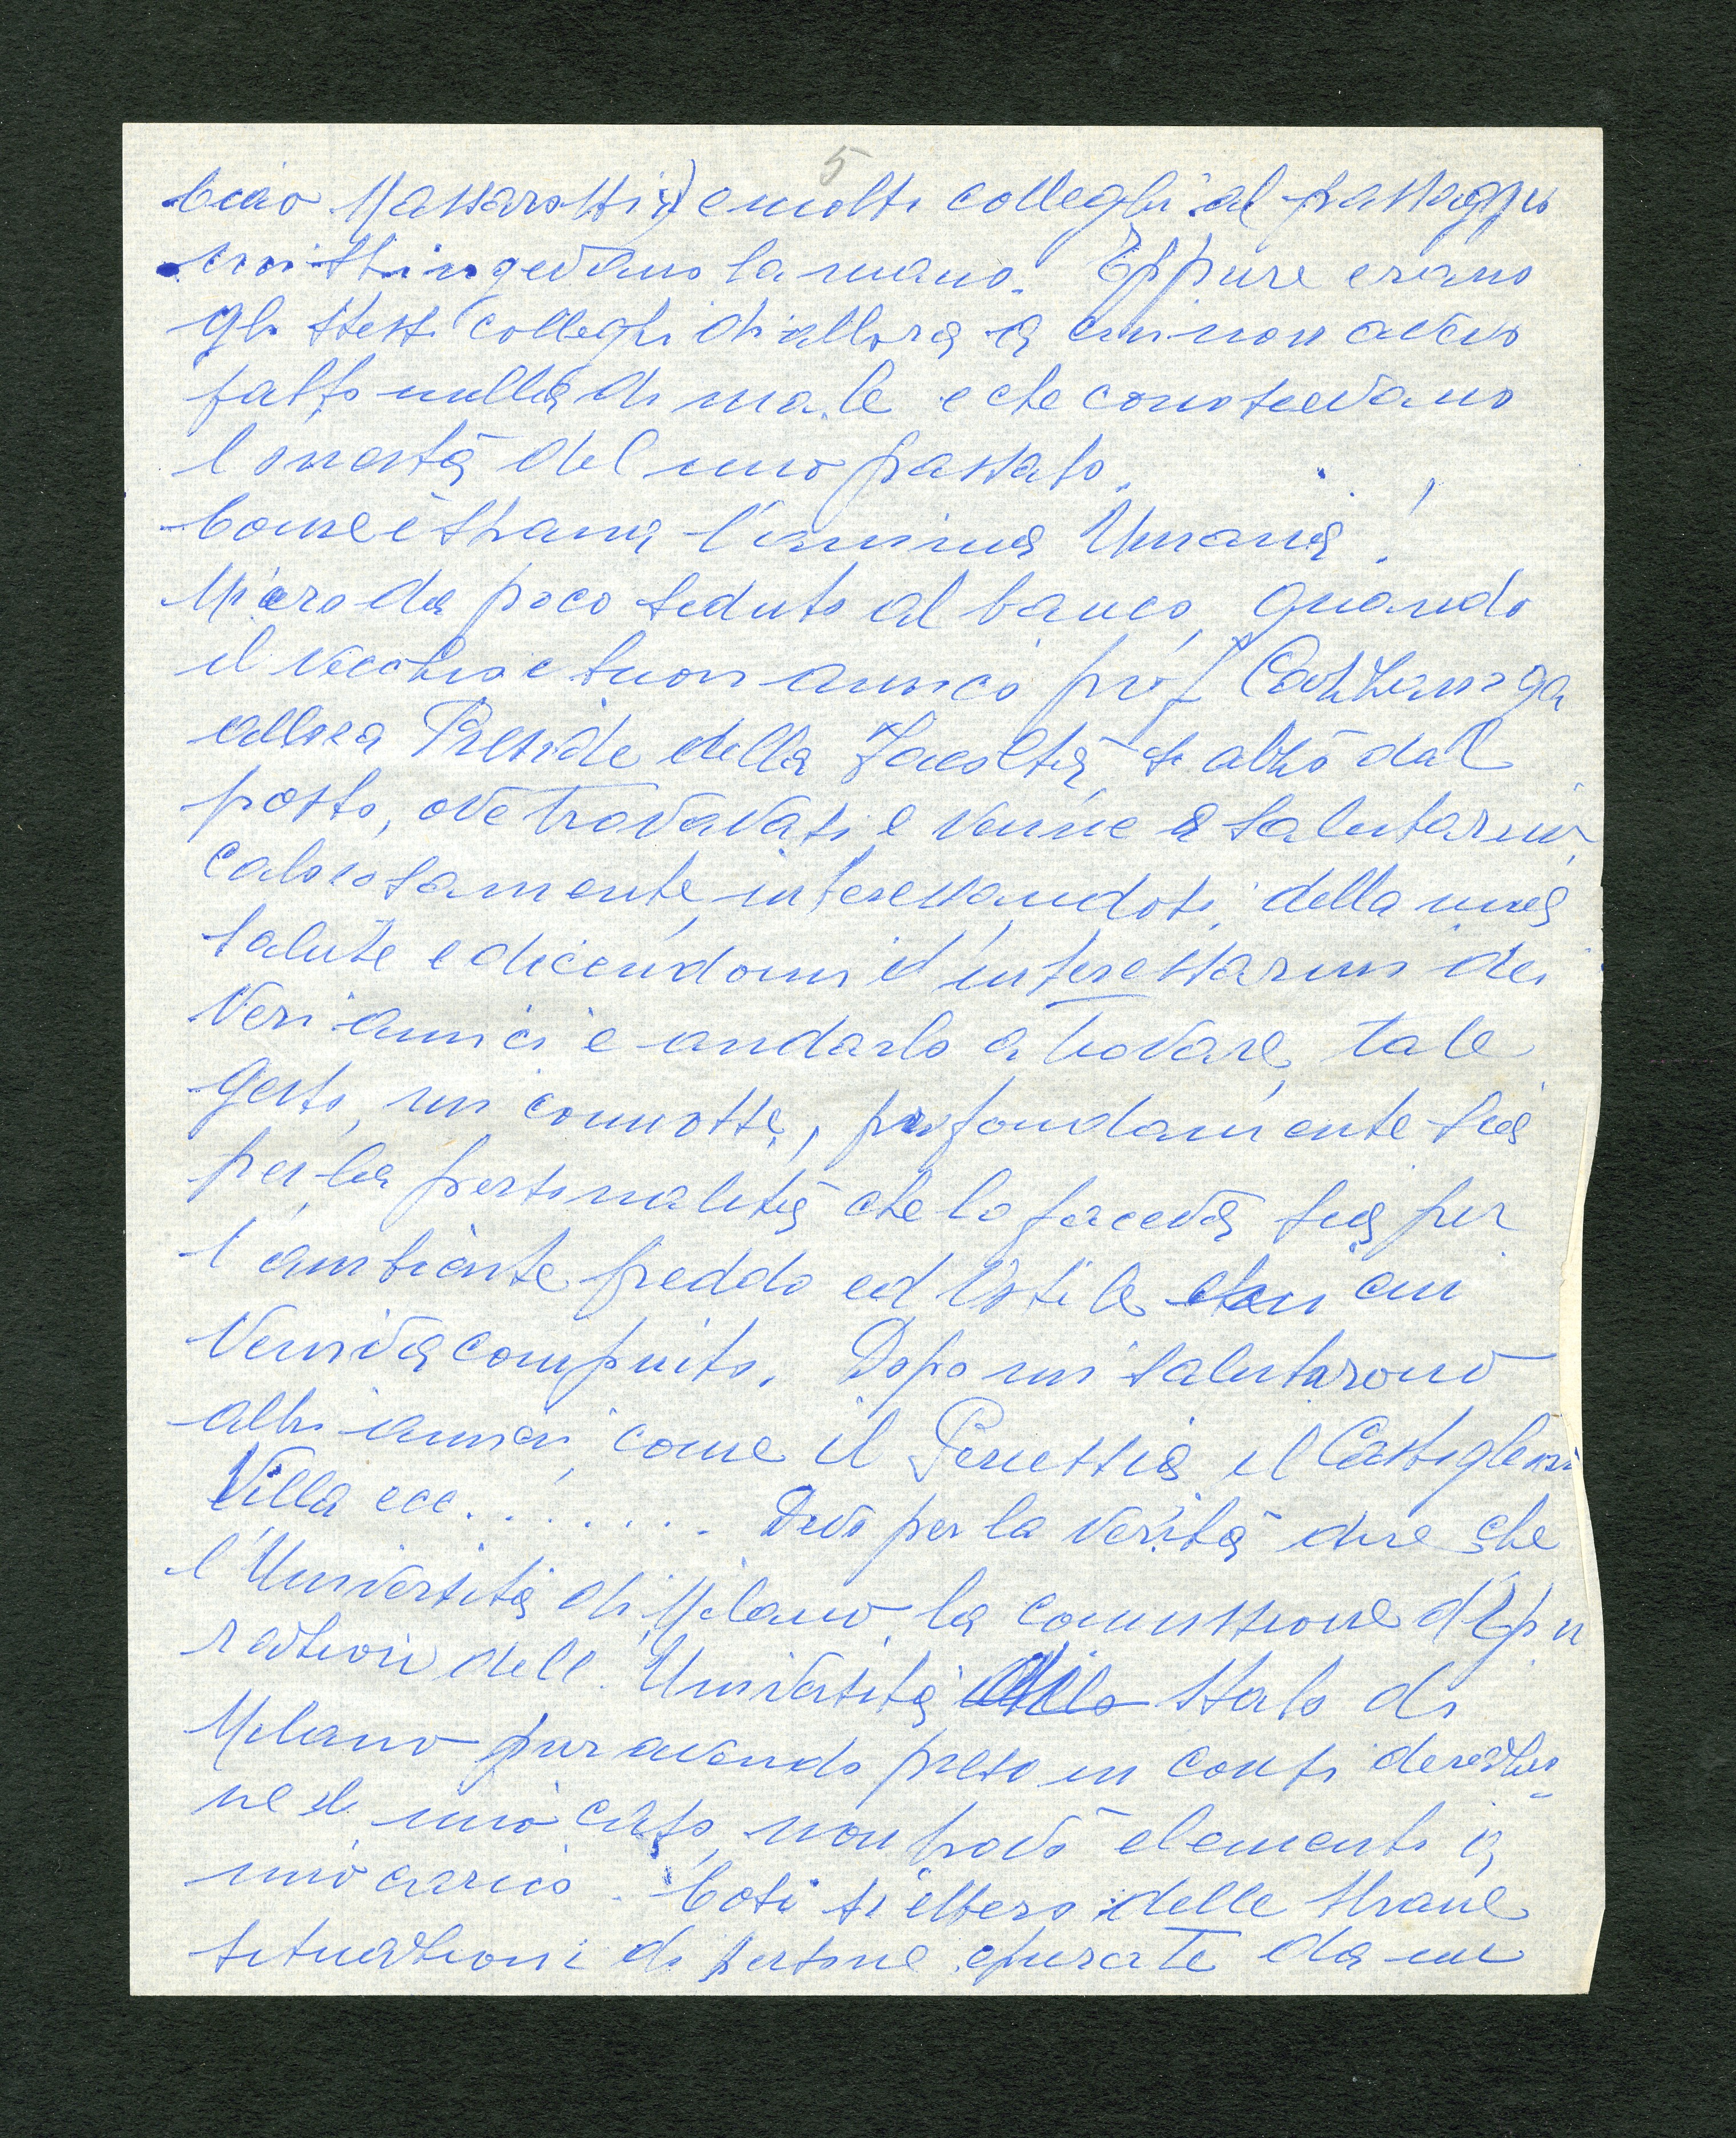 5
Ciao Massarotti) e molti colleghi al passaggio
mi stringevano la mano. Eppure erano
gli stessi colleghi di allora a cui non avevo
fatto nulla di male e che conoscevano
l'onestà del mio passato.
Come è strana l'anima Umana!
Mi ero da poco seduto al banco, quando
il vecchio e buon amico prof Cattaniga
allora Preside della Facoltà, si alzò dal
posto, ove trovavasi e venne a salutarmi
calorosamente, interessandosi della mia
salute e dicendomi d'interessarmi dei
veri amici e andarlo a trovare, tale
gesto, mi commosse, profondamente sia
per la personalità che lo faceva sia per
l'ambiente freddo ed ostile in cui
veniva compiuto. Dopo mi salutarono
altri amici, come il Perussia il Castiglioni
Villa ecc. . . . . . . . Devo per la verità dire che
l'Università di Milano, la commissione d'Epu
razione dell'Università Stato di
Milano pur avendo preso in considerazio
ne il mio caso, non trovò elementi a
mio carico. Così si ebbero delle strane
situazioni di persone epurate da un